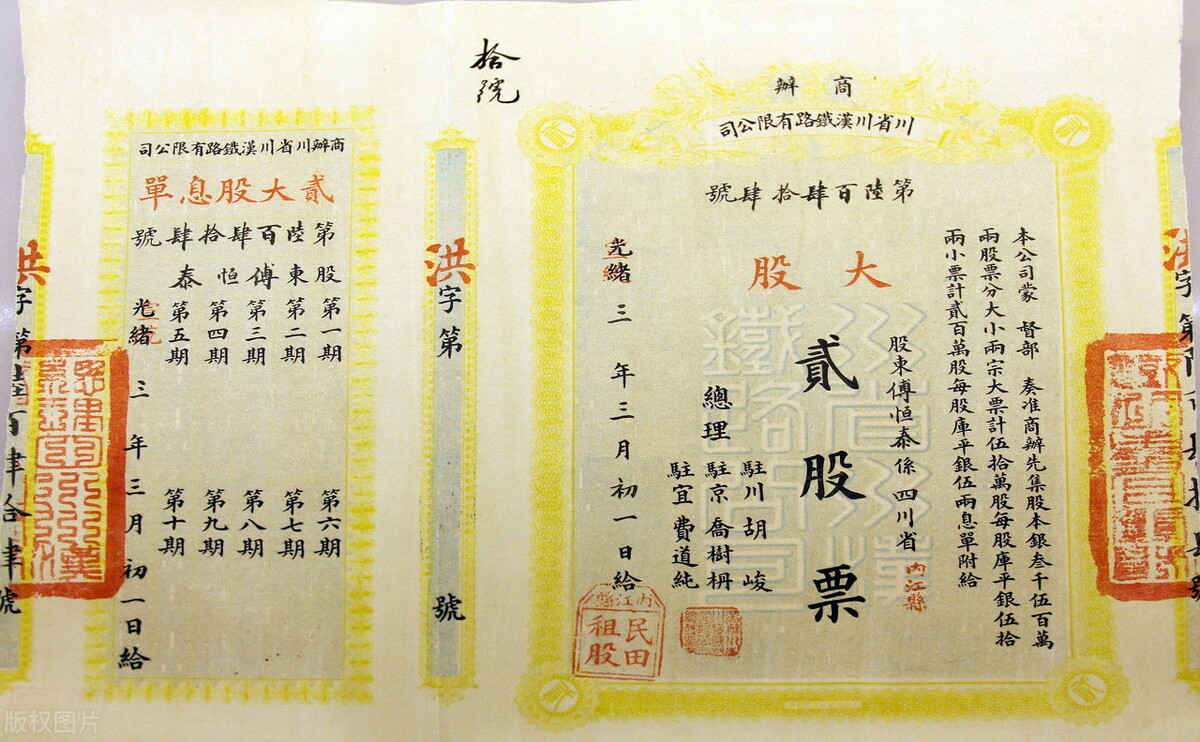 拾號
商辦
川省川漢鐵路有限公司
第陸百肆拾肆號
大股
本公司蒙 督部 奏准商辦先集股本銀叁千伍百萬
兩股票分大小兩宗大票計伍拾萬股每股庫平銀伍拾
兩小票計貳百萬股每股庫平銀伍兩息單附給
股東傅恒泰係四川省內江縣
貳股票
川省川漢
鐵路公司
總理
駐川胡峻
駐京喬樹枬
駐宜費道純
光緒三年三月初一日給
內江縣
民田
租股
洪字第 號
商辦川省川漢鐵路有限公司
貳大股息單
第陸百肆拾肆號
股東傅恒泰
第一期 第六期
第二期 第七期
第三期 第八期
第四期 第九期
第五期 第十期
光緒三年三月初一日給
洪字第陸百肆拾肆號
版权图片